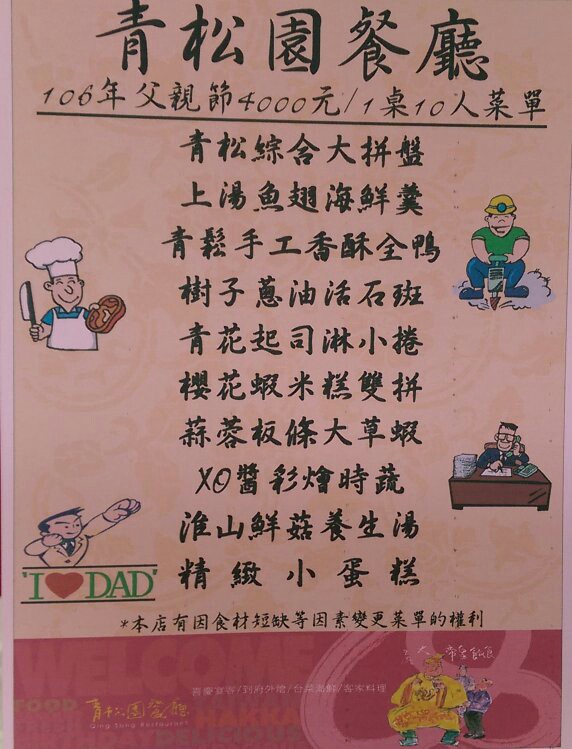 青松園餐廳
106年父親節4000元/1桌10人菜單
青松綜合大拼盤
上湯魚翅海鮮羹
青鬆手工香酥全鴨
樹子蔥油活石班
青花起司淋小捲
櫻花蝦米糕雙拼
蒜蓉板條大草蝦
XO醬彩燴時蔬
淮山鮮菇養生湯
精緻小蛋糕
"I DAD"
*本店有因食材短缺等因素變更菜單的權利
喜慶宴客/到府外燴/台菜海鮮/客家料理
FOOD
青松園餐廳
Qing Song Restaurant
HAKKA